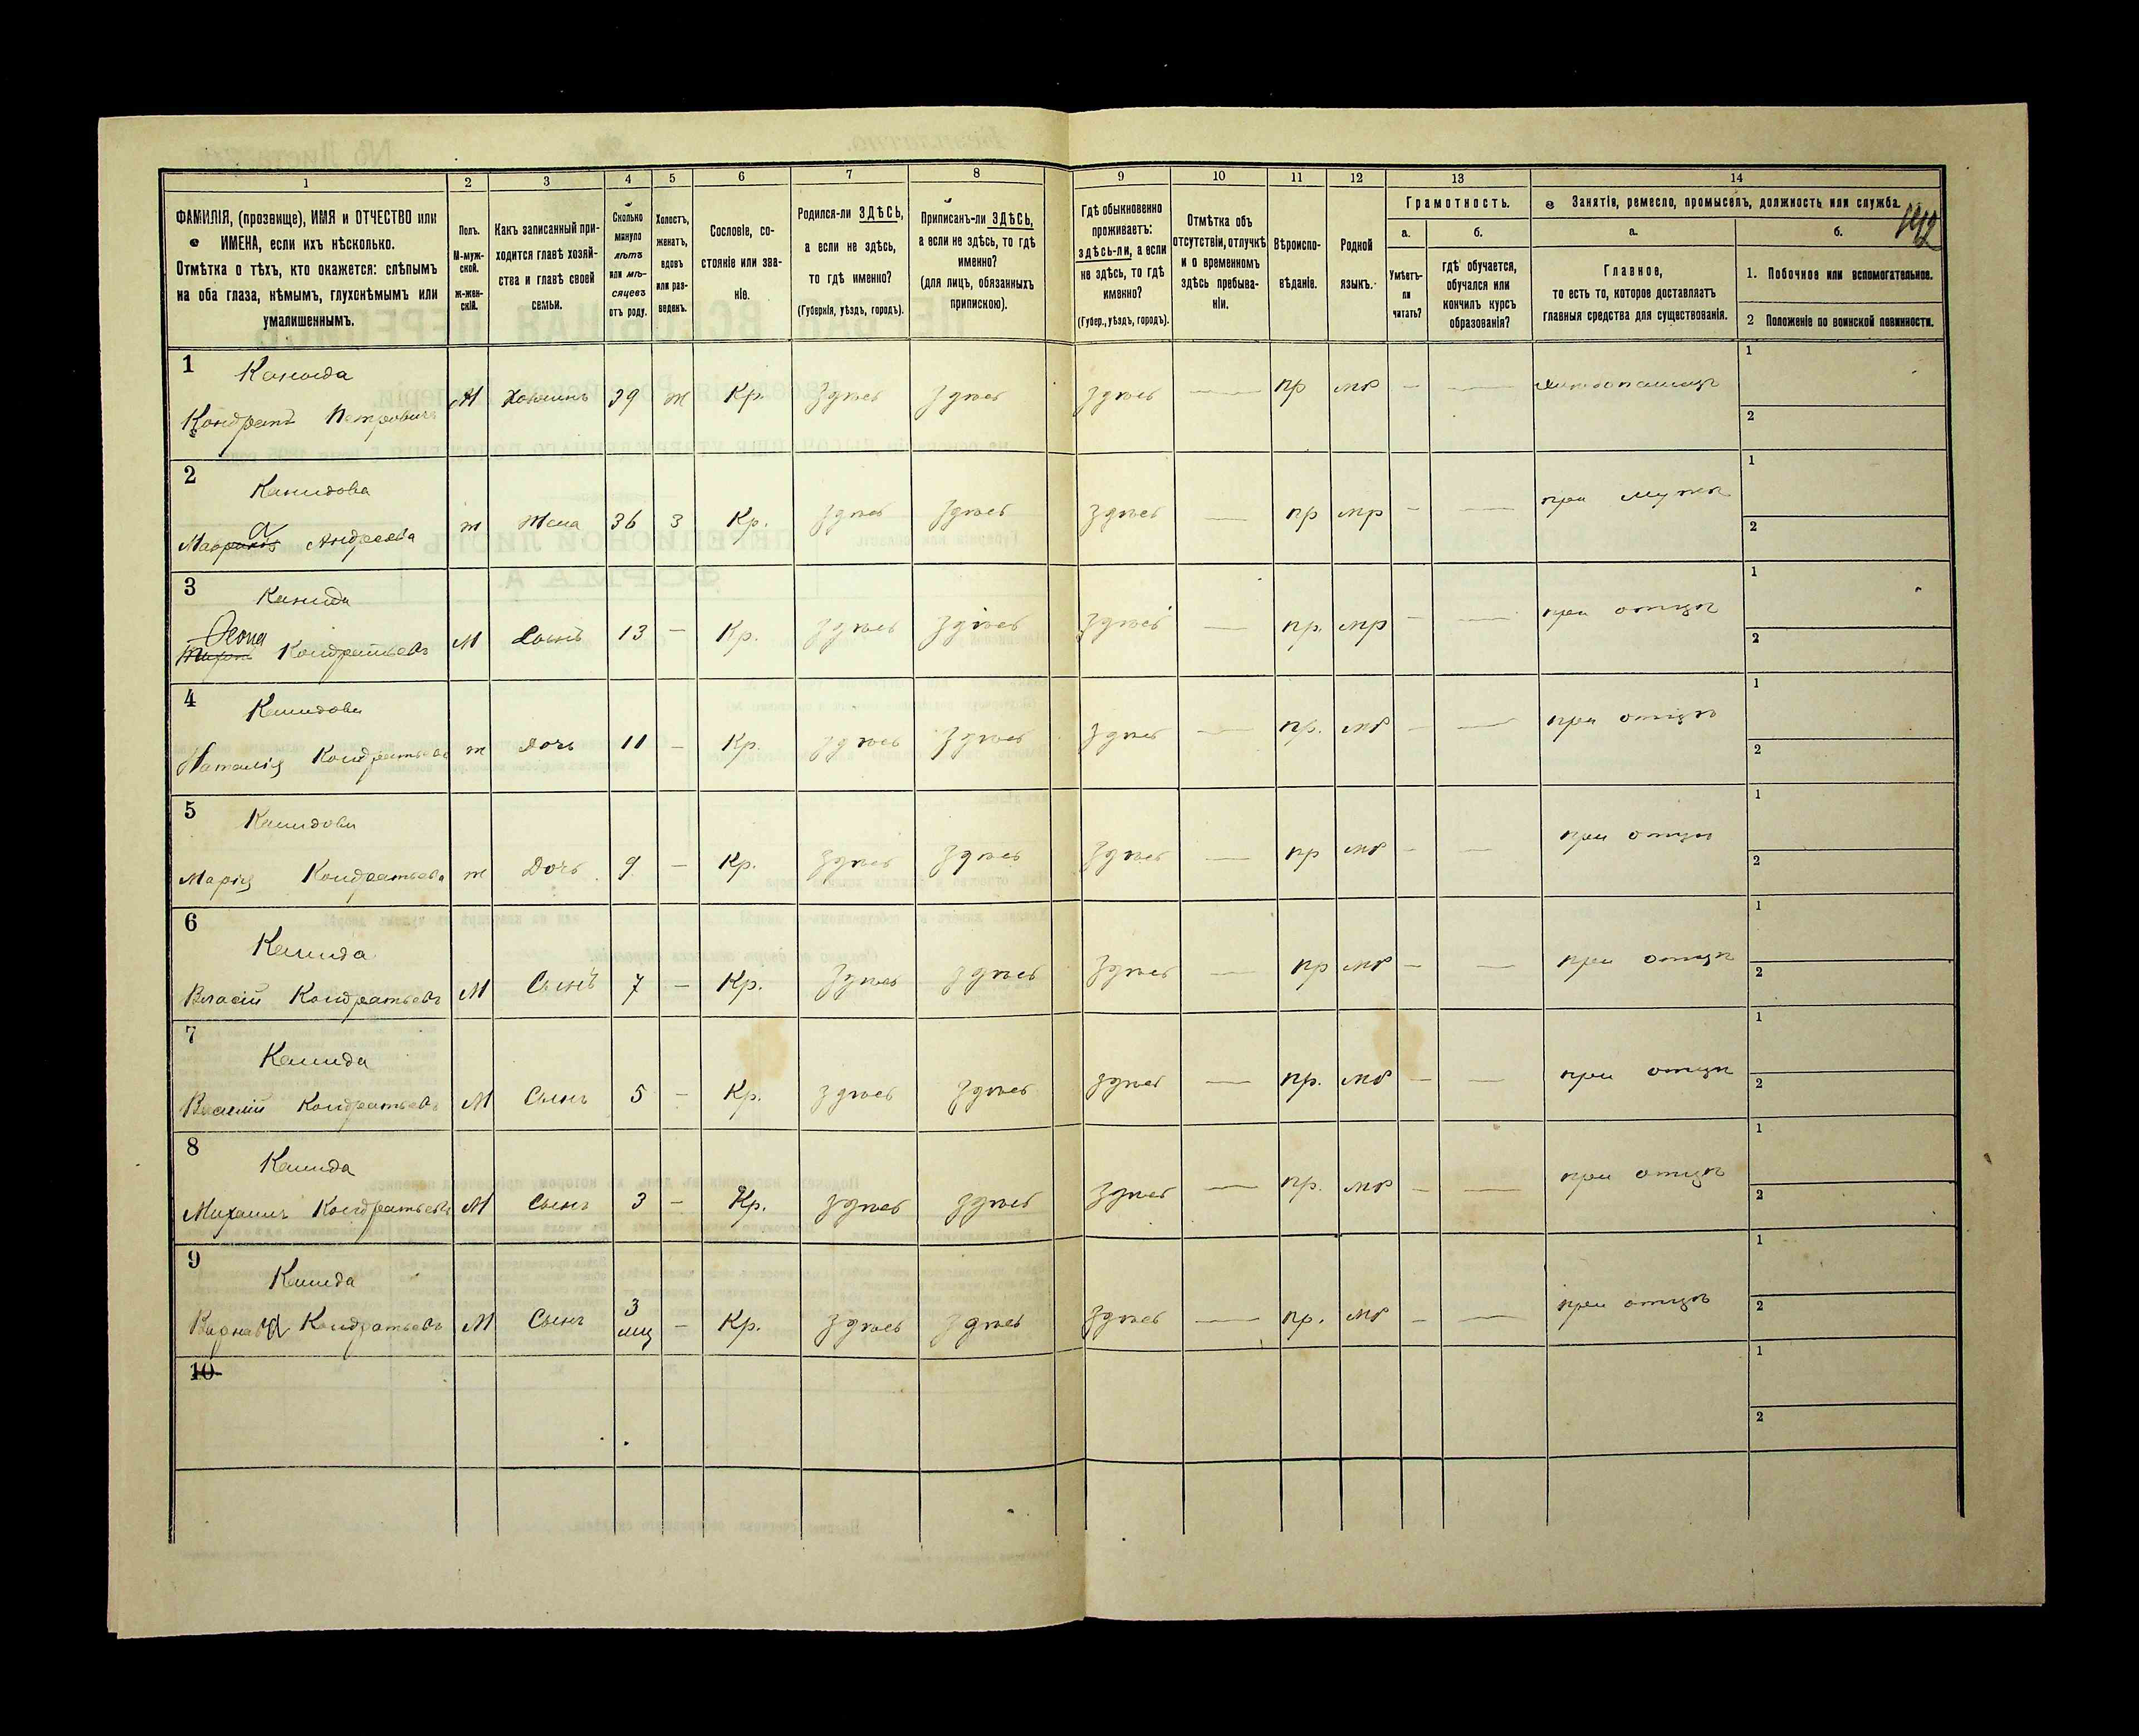 1 2 3 4 5 6 7 8 9 10 11 12 13 14
ФАМИЛІЯ, (прозвище), ИМЯ и ОТЧЕСТВО или
ИМЕНА, если ихъ нѣсколько.
Отмѣтка о тѣхъ, кто окажется: слѣпымъ
на оба глаза, нѣмымъ, глухонѣмымъ или
умалишеннымъ.
Полъ.
М-муж-
ской.
ж-жен-
скій.
Какъ записанный при-
ходится главѣ хозяй-
ства и главѣ своей
семьи.
Сколько
минуло
лѣтъ
или мѣ-
сяцевъ
отъ роду.
Холостъ,
женатъ,
вдовъ
или раз-
веденъ.
Сословіе, со-
стояніе или зва-
ніе.
Родился-ли ЗДѢСЬ,
а если не здѣсь,
то гдѣ именно?
(Губернія, уѣздъ, городъ).
Приписанъ-ли ЗДѢСЬ,
а если не здѣсь, то гдѣ
именно?
(для лицъ, обязанныхъ
припискою).
Гдѣ обыкновенно
проживаетъ:
здѣсь-ли, а если
не здѣсь, то гдѣ
именно?
(Губер., уѣздъ, городъ).
Отмѣтка объ
отсутствіи, отлучкѣ
и о временномъ
здѣсь пребыва-
ніи.
Вѣроиспо-
вѣданіе.
Родной
языкъ.
Грамотность.
а.
Умѣетъ-
ли
читать?
б.
гдѣ обучается,
обучался или
кончилъ курсъ
образованія?
Занятіе, ремесло, промыселъ, должность или служба.
а.
Главное,
то есть то, которое доставляетъ
главныя средства для существованія.
б.
1. Побочное или вспомогательное.
2 Положеніе по воинской повинности.
1
Кондратъ Петровичъ М Хозяинъ 39 ж Кр. Здѣсь Здѣсь Здѣсь — пр мр — — 1
2
2
Андреева ж Жена 36 З Кр. Здѣсь Здѣсь Здѣсь — пр мр — — при мужѣ 1
2
3
Кондратьевъ М Сынъ 13 — Кр. Здѣсь Здѣсь Здѣсь — пр. мр — — при отцѣ 1
2
4
Наталія Кондратьева ж Дочь 11 — Кр. Здѣсь Здѣсь Здѣсь — пр. мр — — при отцѣ 1
2
5
Марія Кондратьева ж Дочь 9 — Кр. Здѣсь Здѣсь Здѣсь — пр мр — — при отцѣ 1
2
6
Власій Кондратьевъ М Сынъ 7 — Кр. Здѣсь Здѣсь Здѣсь — пр мр — — при отцѣ 1
2
7
Василій Кондратьевъ М Сынъ 5 — Кр. Здѣсь Здѣсь Здѣсь — пр. мр — — при отцѣ 1
2
8
Михаилъ Кондратьевъ М Сынъ 3 — Кр. Здѣсь Здѣсь Здѣсь — пр. мр — — при отцѣ 1
2
9
Кондратьевъ М Сынъ 3 мц — Кр. Здѣсь Здѣсь Здѣсь — пр. мр — — при отцѣ 1
2
10
1
2